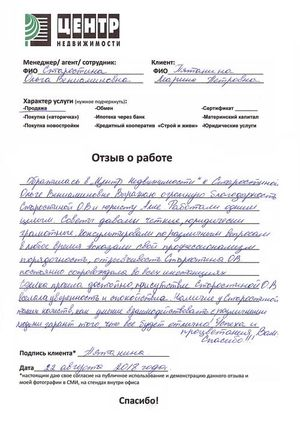 ЦЕНТР
НЕДВИЖИМОСТИ
Менеджер/ агент/ сотрудник:
Клиент:
ФИО Старостина
ФИО Пятанина
Ольга Вениаминовна
Марина Петровна
Характер услуги (нужное подчеркнуть):
-Продажа
-Обмен
-Сертификат
-Покупка («вторичка»)
-Ипотека через банк
-Материнский капитал
-Покупка новостройки
-Кредитный кооператив «Строй и живи»
-Юридические услуги
Отзыв о работе
Обратилась в "Центр недвижимости" к Старостиной
Ольге Вениаминовне Выражаю огромную благодарность
Старостиной О.В и юристу Яне Работали одним
целым. Советы давали четкие, юридически
грамотные. Консультировали по различным вопросам
в любое время показали свой профессионализм
порядочность, отзывчивость Старостина О.В.
постоянно сопровождала во всех инстанциях
Сделка прошла достойно присутствие Старостиной О.В
вселяло уверенность и спокойствие. Наличие у Старостиной
таких качеств, как умение взаимодействовать с различными
людьми гарант того, что все будет отлично Успеха и
процветания Вам.
Спасибо!!!
Подпись клиента* Пятанина
Дата 22 августа 2018 года
*настоящим даю свое согласие на публичное использование и демонстрацию данного отзыва и
моей фотографии в СМИ, на стендах внутри офиса
Спасибо!